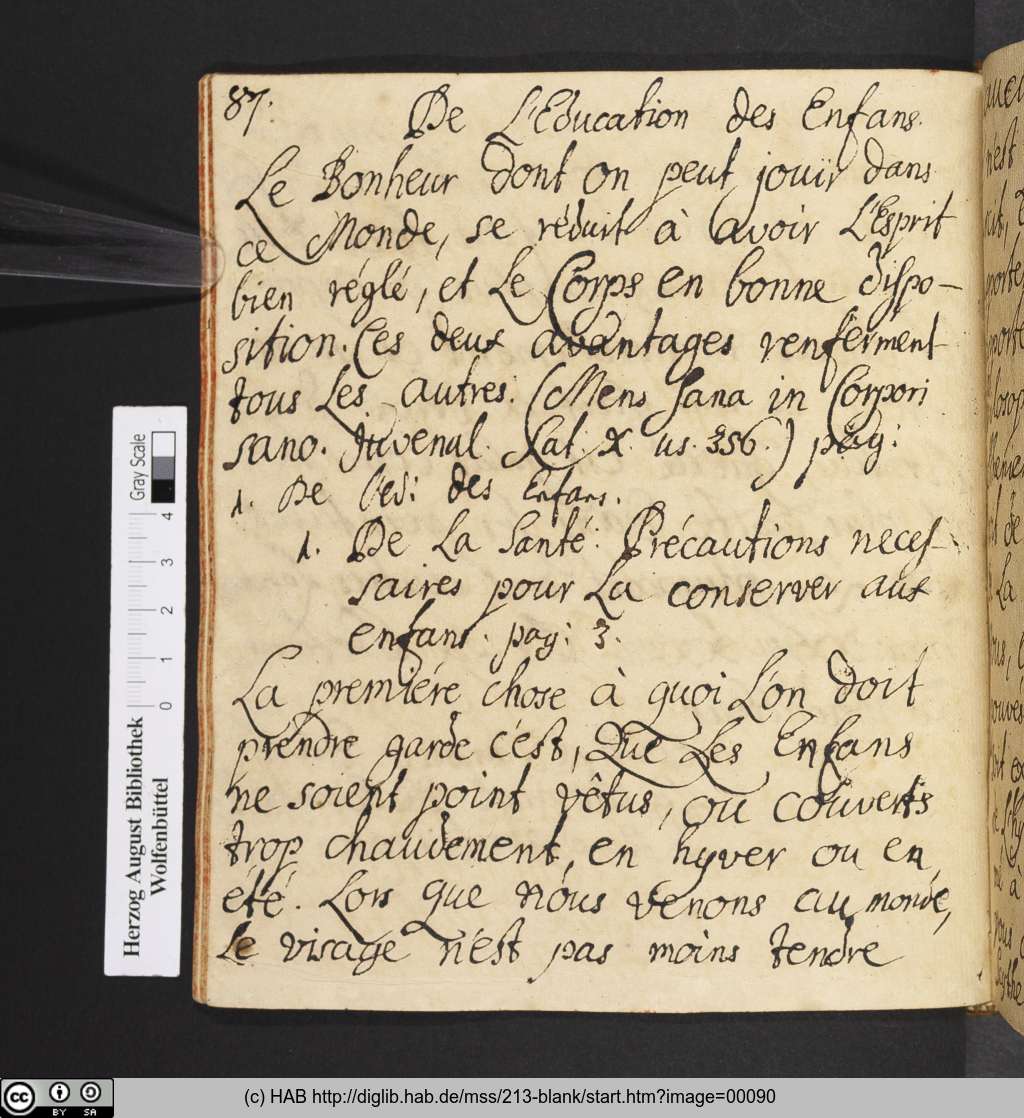 87.
De L'Education des Enfans.
Le Bonheur dont on peut jouïr dans
ce Monde, se réduit à avoir L'Esprit
bien réglé, et Le Corps en bonne dispo-
sition. Ces deux avantages renferment
tous Les autres. (Mens sana in Corpori
sano. Juvenal. Sat. X. us. 356.) pag:
1. De l'ed: des Enfans.
1. De La Santé: Précautions neces-
saires pour La conserver aux
enfans. pag: 3.
La premiére chose à quoi L'on doit
prendre garde c'est, Que Les Enfans
ne soient point vêtus, ou couverts
trop chaudement, en hyver ou en
été. Lors que nous venons au monde,
Le visage n'est pas moins tendre
Herzog August Bibliothek
Wolfenbüttel
Gray Scale
0 1 2 3 4
cc BY SA
(c) HAB http://diglib.hab.de/mss/213-blank/start.htm?image=00090